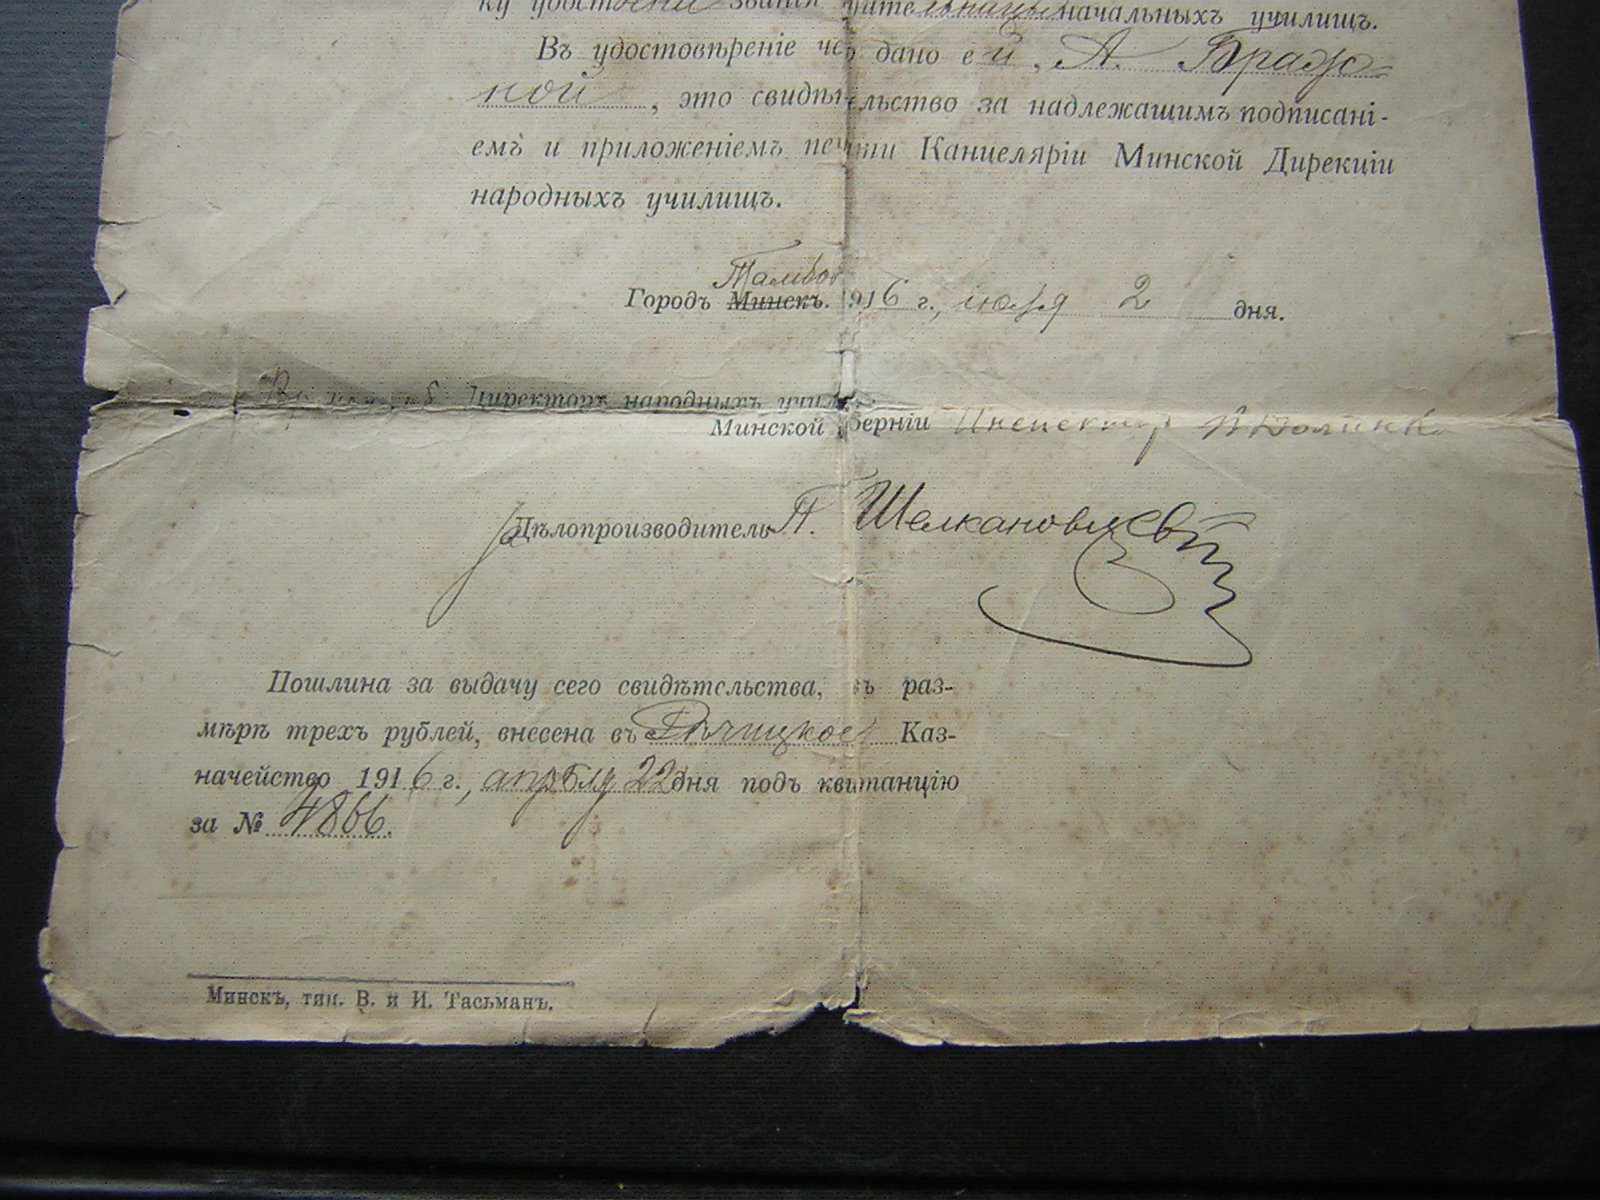 ку удостоена званія учительницы начальныхъ училищъ.
Въ удостовѣреніе чего дано ей, А. Браж-
ной, это свидѣтельство за надлежащимъ подписані-
емъ и приложеніемъ печати Канцеляріи Минской Дирекціи
народныхъ училищъ.
Тамбов
Городъ Минскъ. 1916 г., іюля 2 дня.
Директоръ народныхъ училищъ
Минской губерніи Инспекторъ
Дѣлопроизводитель П. Шелкановцевъ
Пошлина за выдачу сего свидѣтельства, въ раз-
мѣрѣ трехъ рублей, внесена въ Рѣчицкое Каз-
начейство 1916 г., апрѣля 22 дня подъ квитанцію
за № 4866.
Минскъ, тип. В. и И. Тасьманъ.